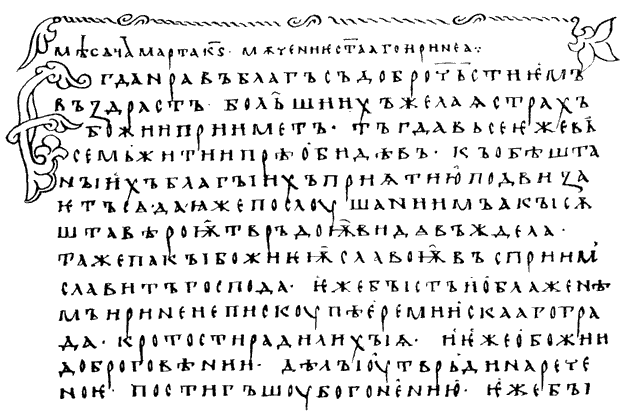 мѣсѧца марта к҃ѕ · мѫчениѥ ст҃ааго иринеа ⁘
Єгда нравъ благъ съ доброчьстиѥмъ
въздрастъ · больши ихъ желаѧ страхъ
божии прииметъ · тъгда вьсе ѥже въ
семь житии прѣобидѣвъ · къ обѣшта
ныихъ благыихъ приѩтию подвиза
ѥтъ сѧ · да ꙗже послоушаниимъ акы сѫ
шта вѣроѭ твръдоѭ видѧ въждела ·
та же пакы божиѥѭ славоѭ въсприимъ
славитъ господа · ѥже бысть и о блаженѣ
мъ иринеи епискоупѣ ереминскааго гра
да · кротости ради лихыѩ · и ꙗже о божии
доброговѣнии · дѣлы оутврьди нарече
ноѥ · постигъшоу бо гонению · ѥже бы